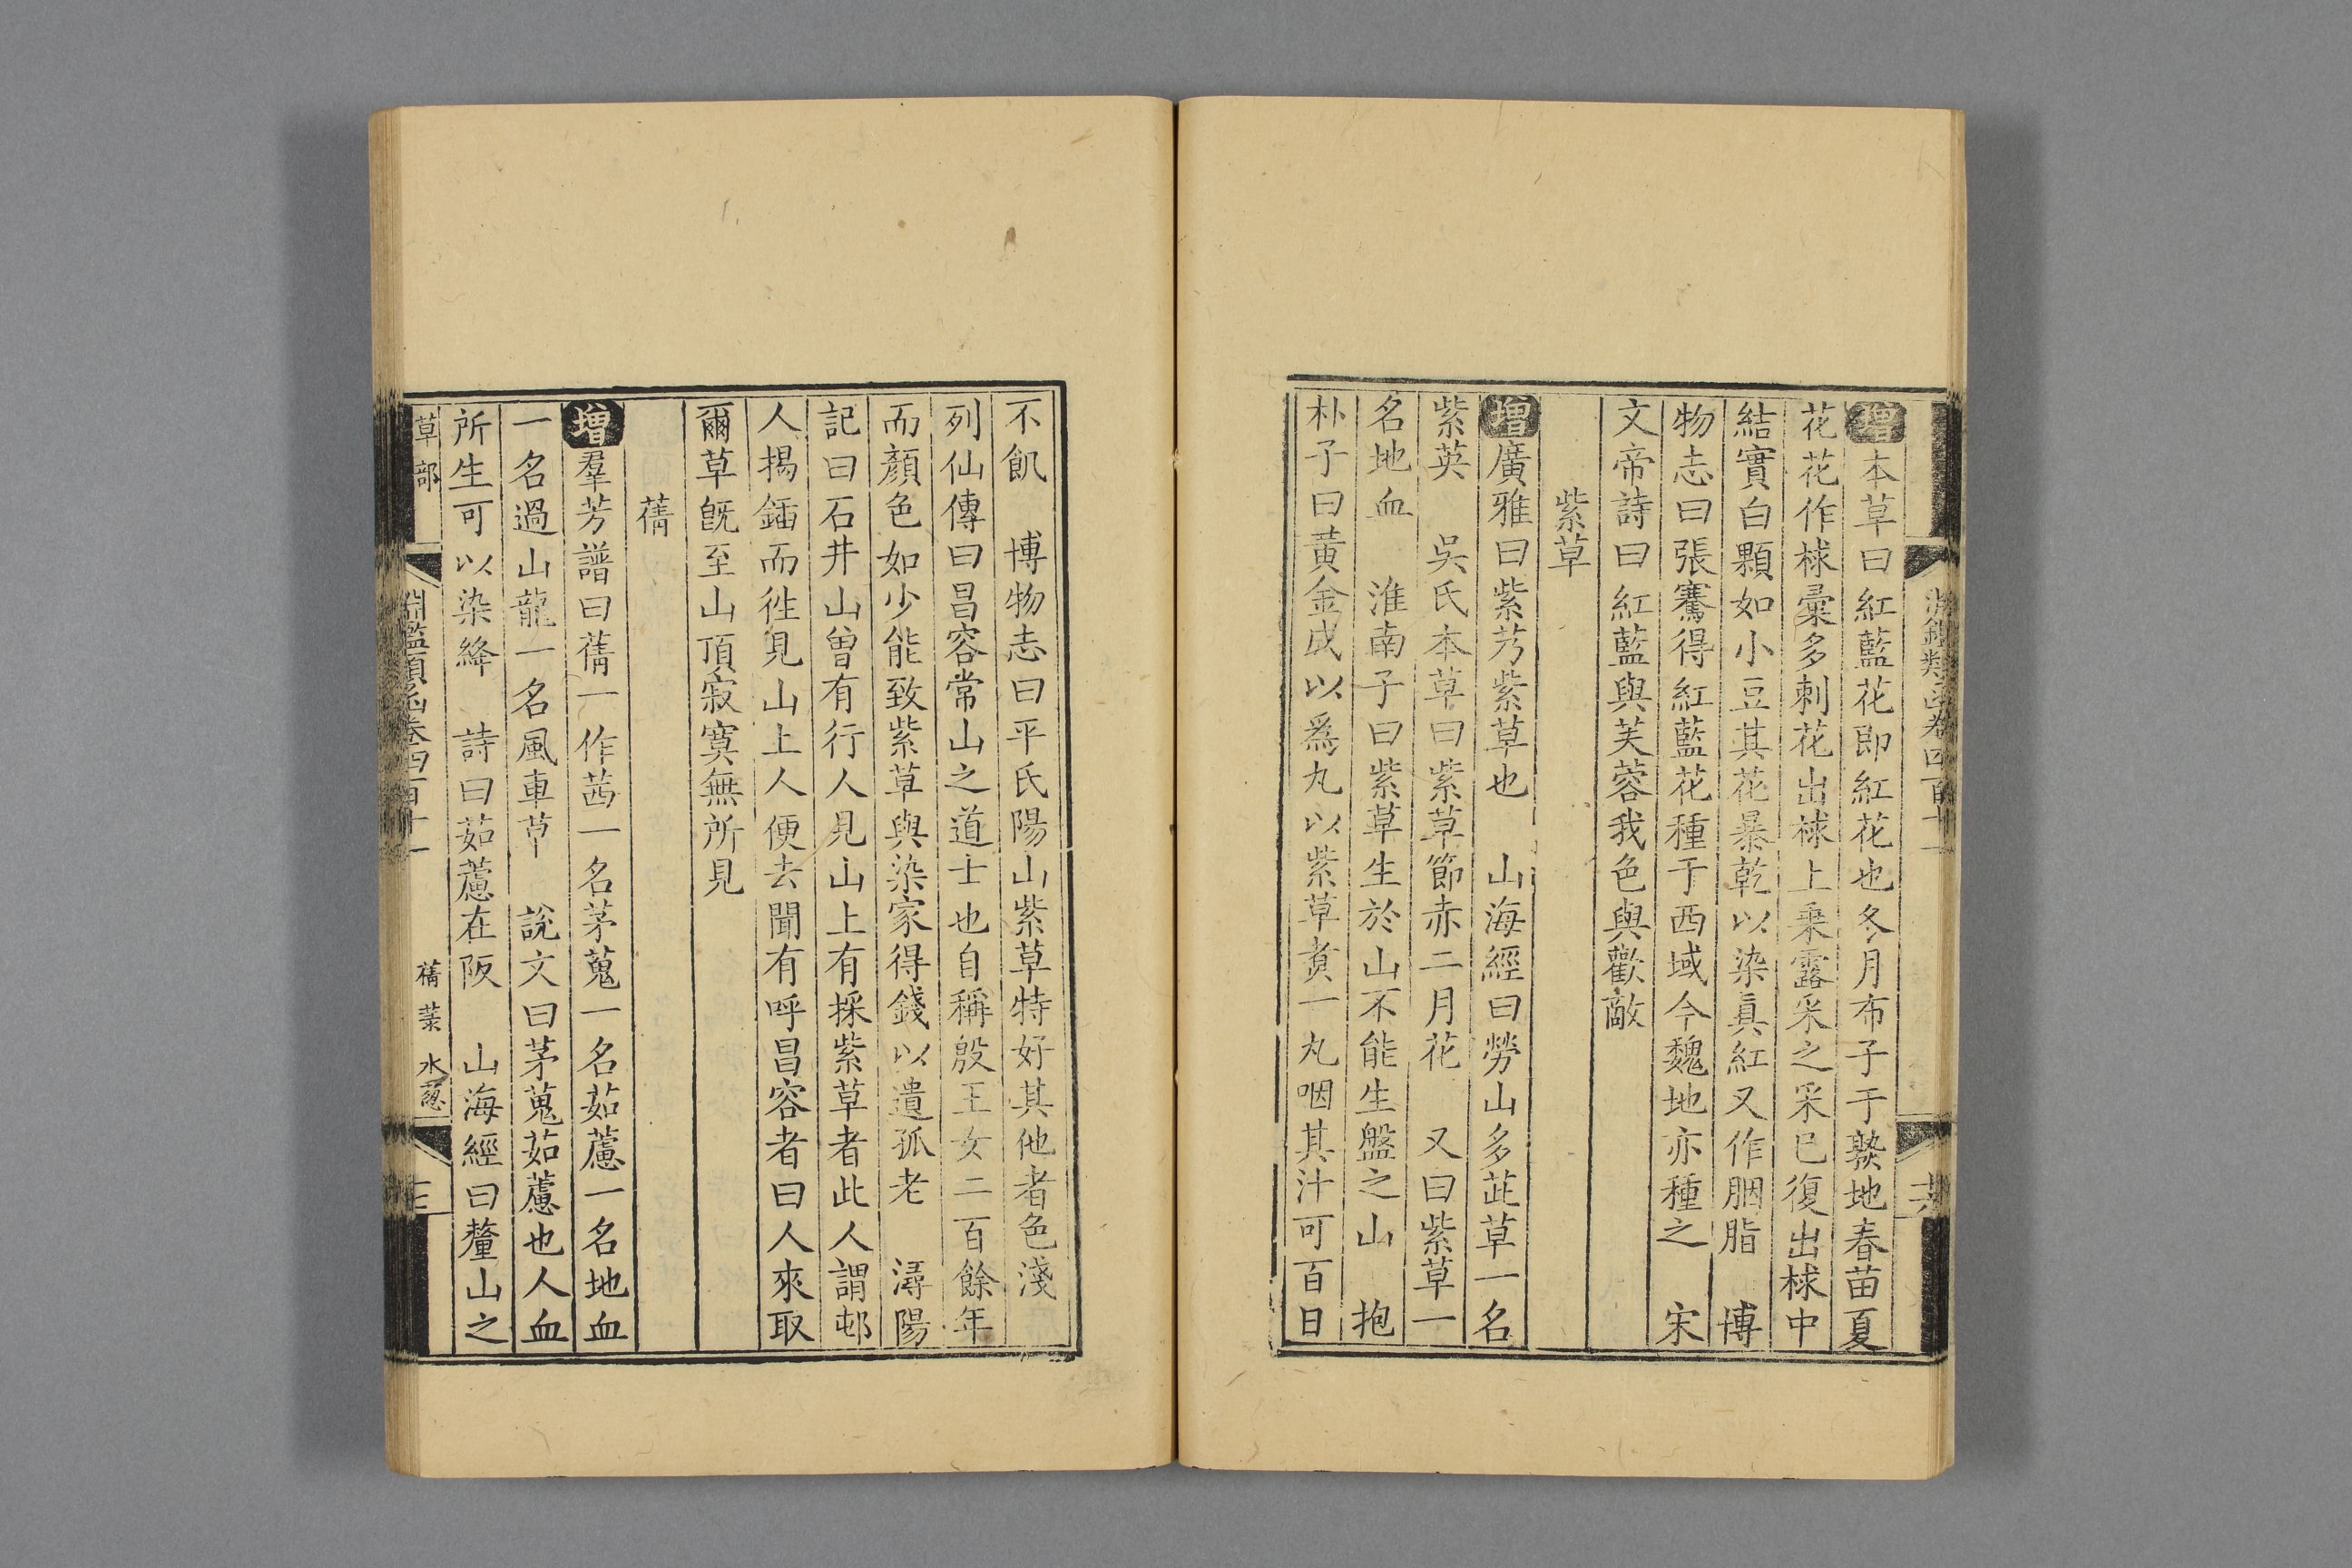 淵鑑類函卷四百十一
增本草曰紅藍花即紅花也冬月布子于𤍠地春苗夏
花花作梂彙多刺花出梂上乘露采之采已復出梂中
結實白顆如小豆其花暴乾以染眞紅又作胭脂 博
物志曰張騫得紅藍花種于西域今魏地亦種之 宋
文帝詩曰紅藍與芙蓉我色與歡敵
紫草
增廣雅曰紫艿紫草也 山海經曰勞山多茈草一名
紫英 吳氏本草曰紫草節赤二月花 又曰紫草一
名地血 淮南子曰紫草生於山不能生盤之山 抱
朴子曰黃金成以爲丸以紫草煑一丸咽其汁可百日
不飢 博物志曰平氏陽山紫草特好其他者色淺
列仙傳曰昌容常山之道士也自稱殷王女二百餘年
而顏色如少能致紫草與染家得錢以遺孤老 潯陽
記曰石井山曾有行人見山上有採紫草者此人謂邨
人揭鍤而徃見山上人便去聞有呼昌容者曰人來取
爾草旣至山頂寂寞無所見
蒨
增羣芳譜曰蒨一作茜一名茅蒐一名茹藘一名地血
一名過山龍一名風車草 說文曰茅蒐茹藘也人血
所生可以染絳 詩曰茹藘在阪 山海經曰釐山之
草部 淵鑑類函卷四百十一 蒨 水蔥